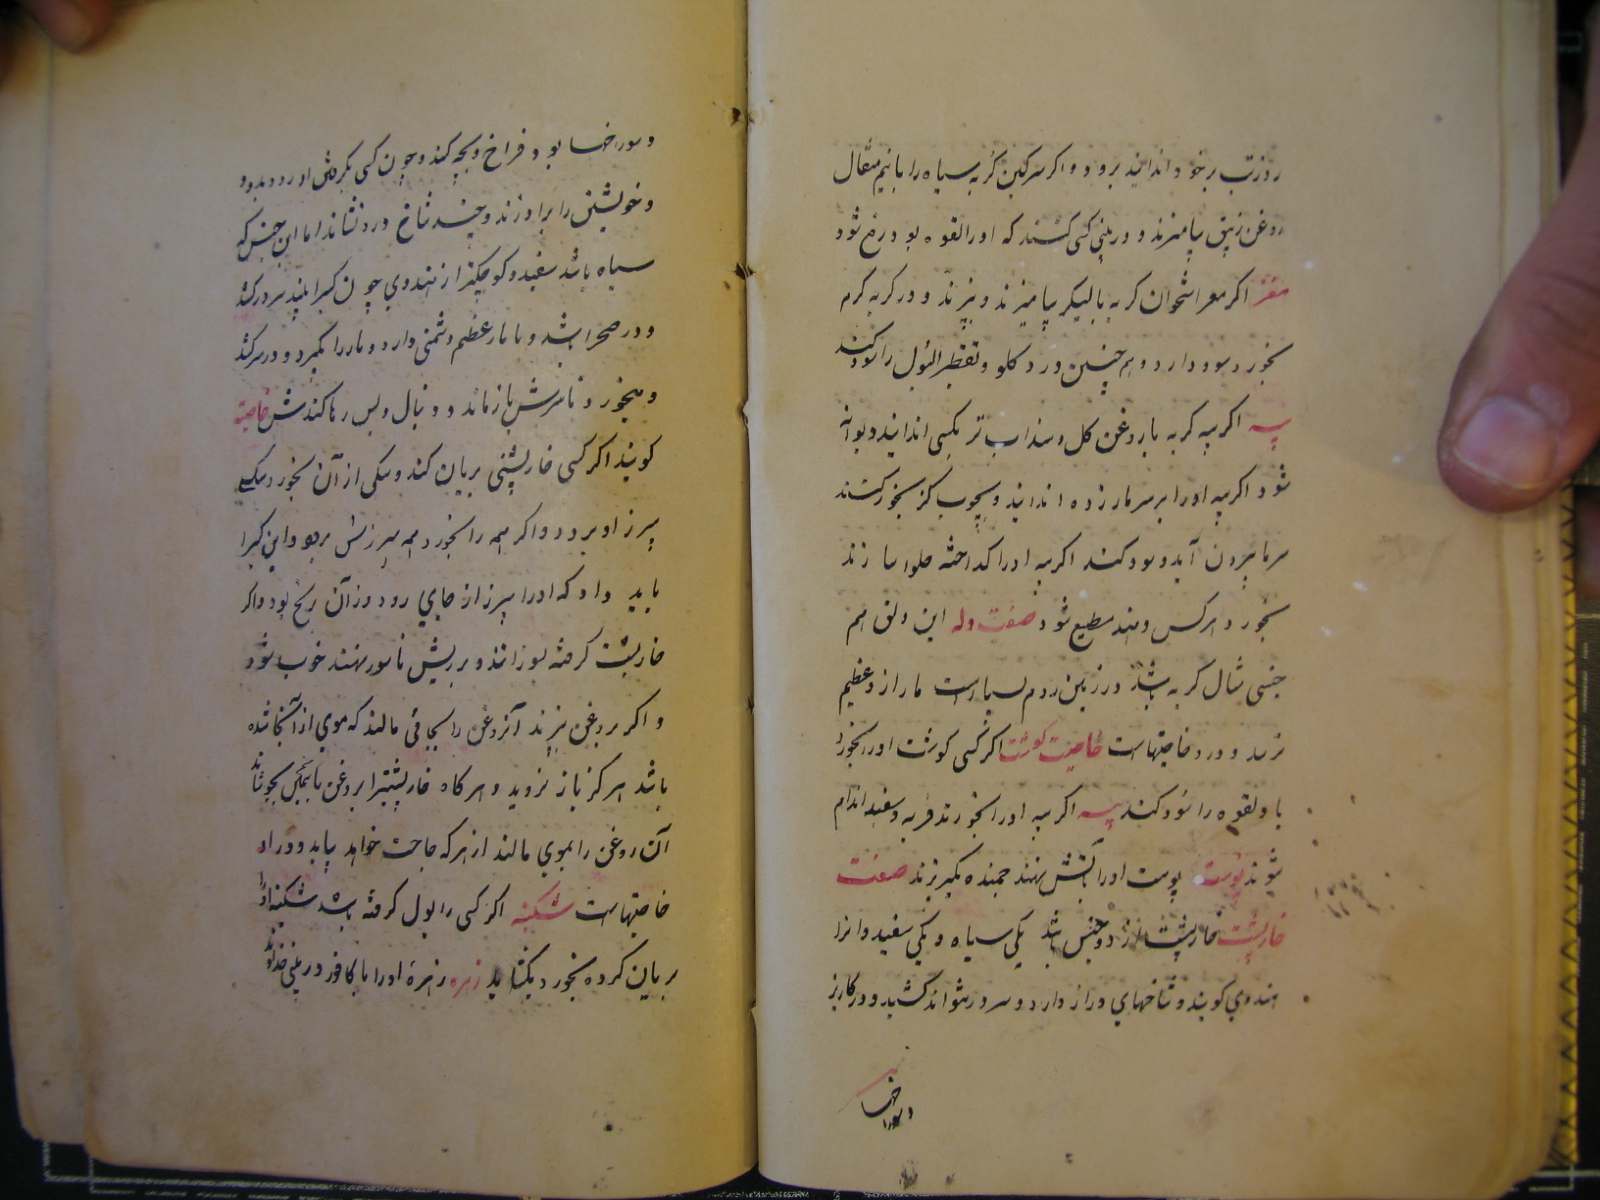 روزتب برخود اندایند برود و اکر سرکین کربه سیاه را بانیم مثقال
روغن زنبق بیامیزند و در بینی کسی کنند که اورا لقوه بود رفع شود
مغز اکر مغز استخوان کربه با بیامیزند و بپزند و در کربه کرم
بخورد سود دارد و هم چنین درد کلو و تقطیر البول را سود کند
پیه اکر پیه کربه با روغن کل و سنداب تر بکسی اندایند دیوانه
شود اکر پیه اورا بر سر مار زده اندایند و بچوب کز بخور کنند
سر ما بیرون آید و سود کند اکر پیه اورا کداخته حلوا سازند
بخورد هرکس دهند مطیع شود صفت دله این دلق هم
جنسی شال کربه باشد در زمین روم بسیارست مار از و عظیم
ترسد و در و خاصیتهاست خاصیت کوشت اکر کسی کوشت اورا بخورد
باد لقوه را سود کند پیه اکر پیه اورا بخورند فربه و سفید اندام
شوند پوست پوست اورا بآتش نهند جمنده بکریزند صفت
خارپشت خارپشت از دو جنس باشد یکی سیاه و یکی سفید و انرا
هندوی کویند و شاخهای دراز دارد و سر در نتواند کشید و در کاریز
و سوراخها
و سوراخها بود و فراخ و بچه کند و چون کسی بکرفتن او رود بدود
و خویشتن را برافرازند و چند شاخ درو نشاند اما این جنس که
سیاه باشد سفید و کوچکتر از هندوی چون کسرا بیند سر در کشد
و در صحرا باشد و با مار عظیم دشمنی دارد و مار را بکیرد و در سر کشد
و میخورد تا سرش باز ماند و دنبال و پس رها کندش خاصیة
کویند اکر کسی خارپشتی بریان کند و یکی از آن بخورد یکی
سپرز او برود و اکر همه را بخورد همه سپرزش برود و این کسرا
باید داد که اورا سپرز از جای رود و زآن رنج بود و اکر
خارپشت کرفته بسوزانند و بر ریش ناسور نهند خوب شود
و اکر بروغن بپزند آنروغن را بجائی مالند که موی از آنجا شده
باشد هرکز باز نروید و هرکاه خارپشتیرا بروغن بجوشانند
آن روغن را بموی مالند از هرکه حاجت خواهد بیابد و در او
خاصیتهاست شکنبه اکر کسی را بول کرفته باشد شکنبه اورا
بریان کرده بخورد بکشاید زهره زهرهٔ اورا با کافور در بینی